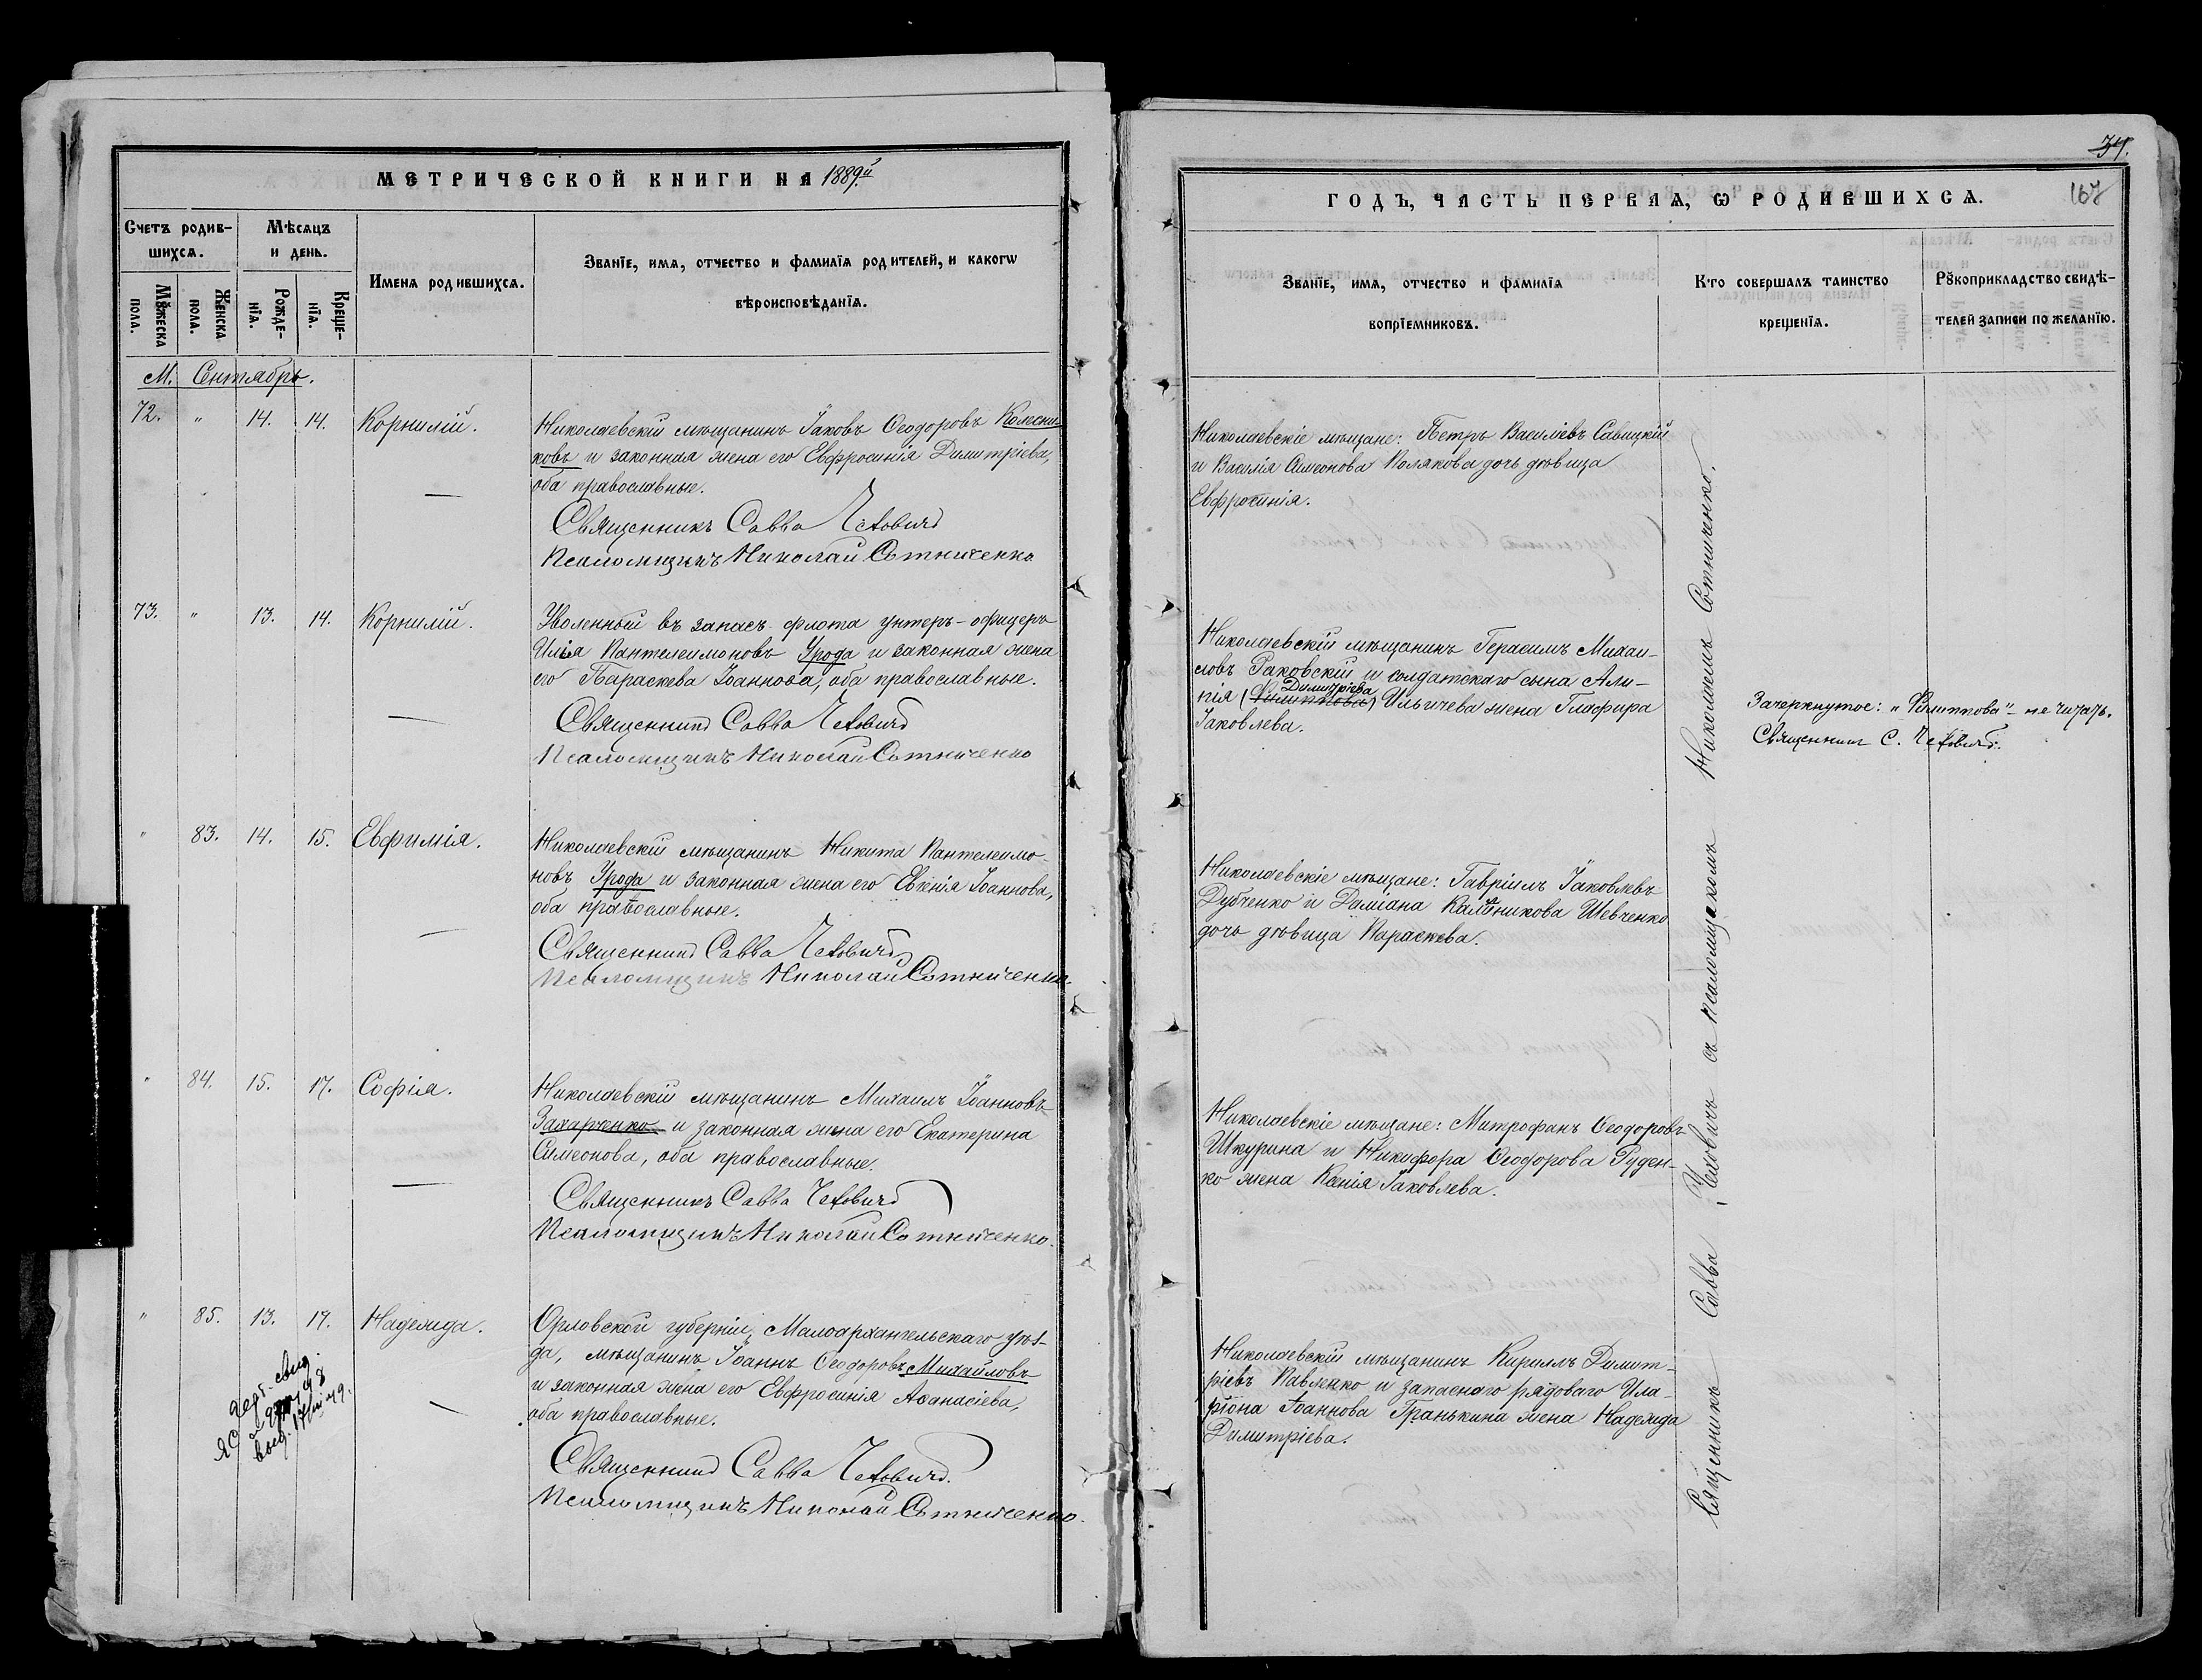 МЕТРИЧЕСКОЙ КНИГИ НА 1889й
Счетъ родив-
шихся.
Мѣсяцъ
и день.
Имена родившихся.
Званїе, имя, отчество и фамилїя родителей, и какогѡ
вѣроисповѣданїя.
Мꙋжеска
пола.
Женска
пола.
Рожде-
нїя.
Креще-
нїя.
М. Сентябрь.
72. " 14. 14. Корнилій.
Николаевскій мѣщанинъ Іаковъ Ѳеодоровъ Колесни-
ковъ и законная жена его Евфросинія Димитріева,
оба православные.
Священникъ Савва
Псаломщикъ Николай Сотниченко
73. " 13. 14. Корнилій.
Уволенный въ запасъ флота унтеръ-офицеръ
Илія Пантелеимоновъ Урода и законная жена
его Параскева Іоаннова, оба православные.
Священникъ Савва
Псаломщикъ Николай Сотниченко
" 83. 14. 15. Евфимія.
Николаевскій мѣщанинъ Никита Пантелеимо-
новъ Урода и законная жена его Евгенія Іоаннова,
оба православные.
Священникъ Савва
Псаломщикъ Николай Сотниченко.
" 84. 15. 17. Софія.
Николаевскій мѣщанинъ Михаилъ Іоанновъ
Захарченко и законная жена его Екатерина
Симеонова, оба православные.
Священникъ Савва
Псаломщикъ Николай Сотниченко.
" 85. 13. 17. Надежда.
Орловской губерніи, Малоархангельскаго уѣз-
да, мѣщанинъ Іоаннъ Ѳеодоровъ Михайловъ
и законная жена его Евфросинія Аѳанасіева,
оба православные.
Священникъ Савва
Псаломщикъ Николай Сотниченко.
34.
167
ГОДЪ, ЧАСТЬ ПЕРВАЯ, Ѡ РОДИВШИХСЯ.
Званїе, имя, отчество и фамилїя
воспрїемниковъ.
Кто совершалъ таинство
крещенїя.
Рꙋкоприкладство свидѣ-
телей записи по желанїю.
Николаевскіе мѣщане: Петръ Василіевъ Савицкій
и Василія Симеонова Полякова дочь дѣвица
Евфросинія.
Николаевскій мѣщанинъ Герасимъ Михаи-
ловъ Раковскій и солдатскаго сына Али-
Димитріева
пія (Филиппова) Ильичева жена Глафира
Іаковлева.
Зачеркнутое: "Филиппова" - не читать.
Священникъ С.
Николаевскіе мѣщане: Гавріилъ Іаковлевъ
Дубченко и Даміана Каллиникова Шевченко
дочь дѣвица Параскева.
Николаевскіе мѣщане: Митрофанъ Ѳеодоровъ
Шкурина и Никифора Ѳеодорова Руден-
ко жена Ксенія Іаковлева.
Николаевскій мѣщанинъ Кириллъ Димит-
ріевъ Павленко и запаснаго рядоваго Ила-
ріона Іоаннова Гранькина жена Надежда
Димитріева.
Священникъ Савва с псаломщикомъ Николаемъ Сотниченко.